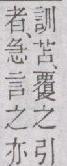 訓、苫、覆之引
者、急言之亦